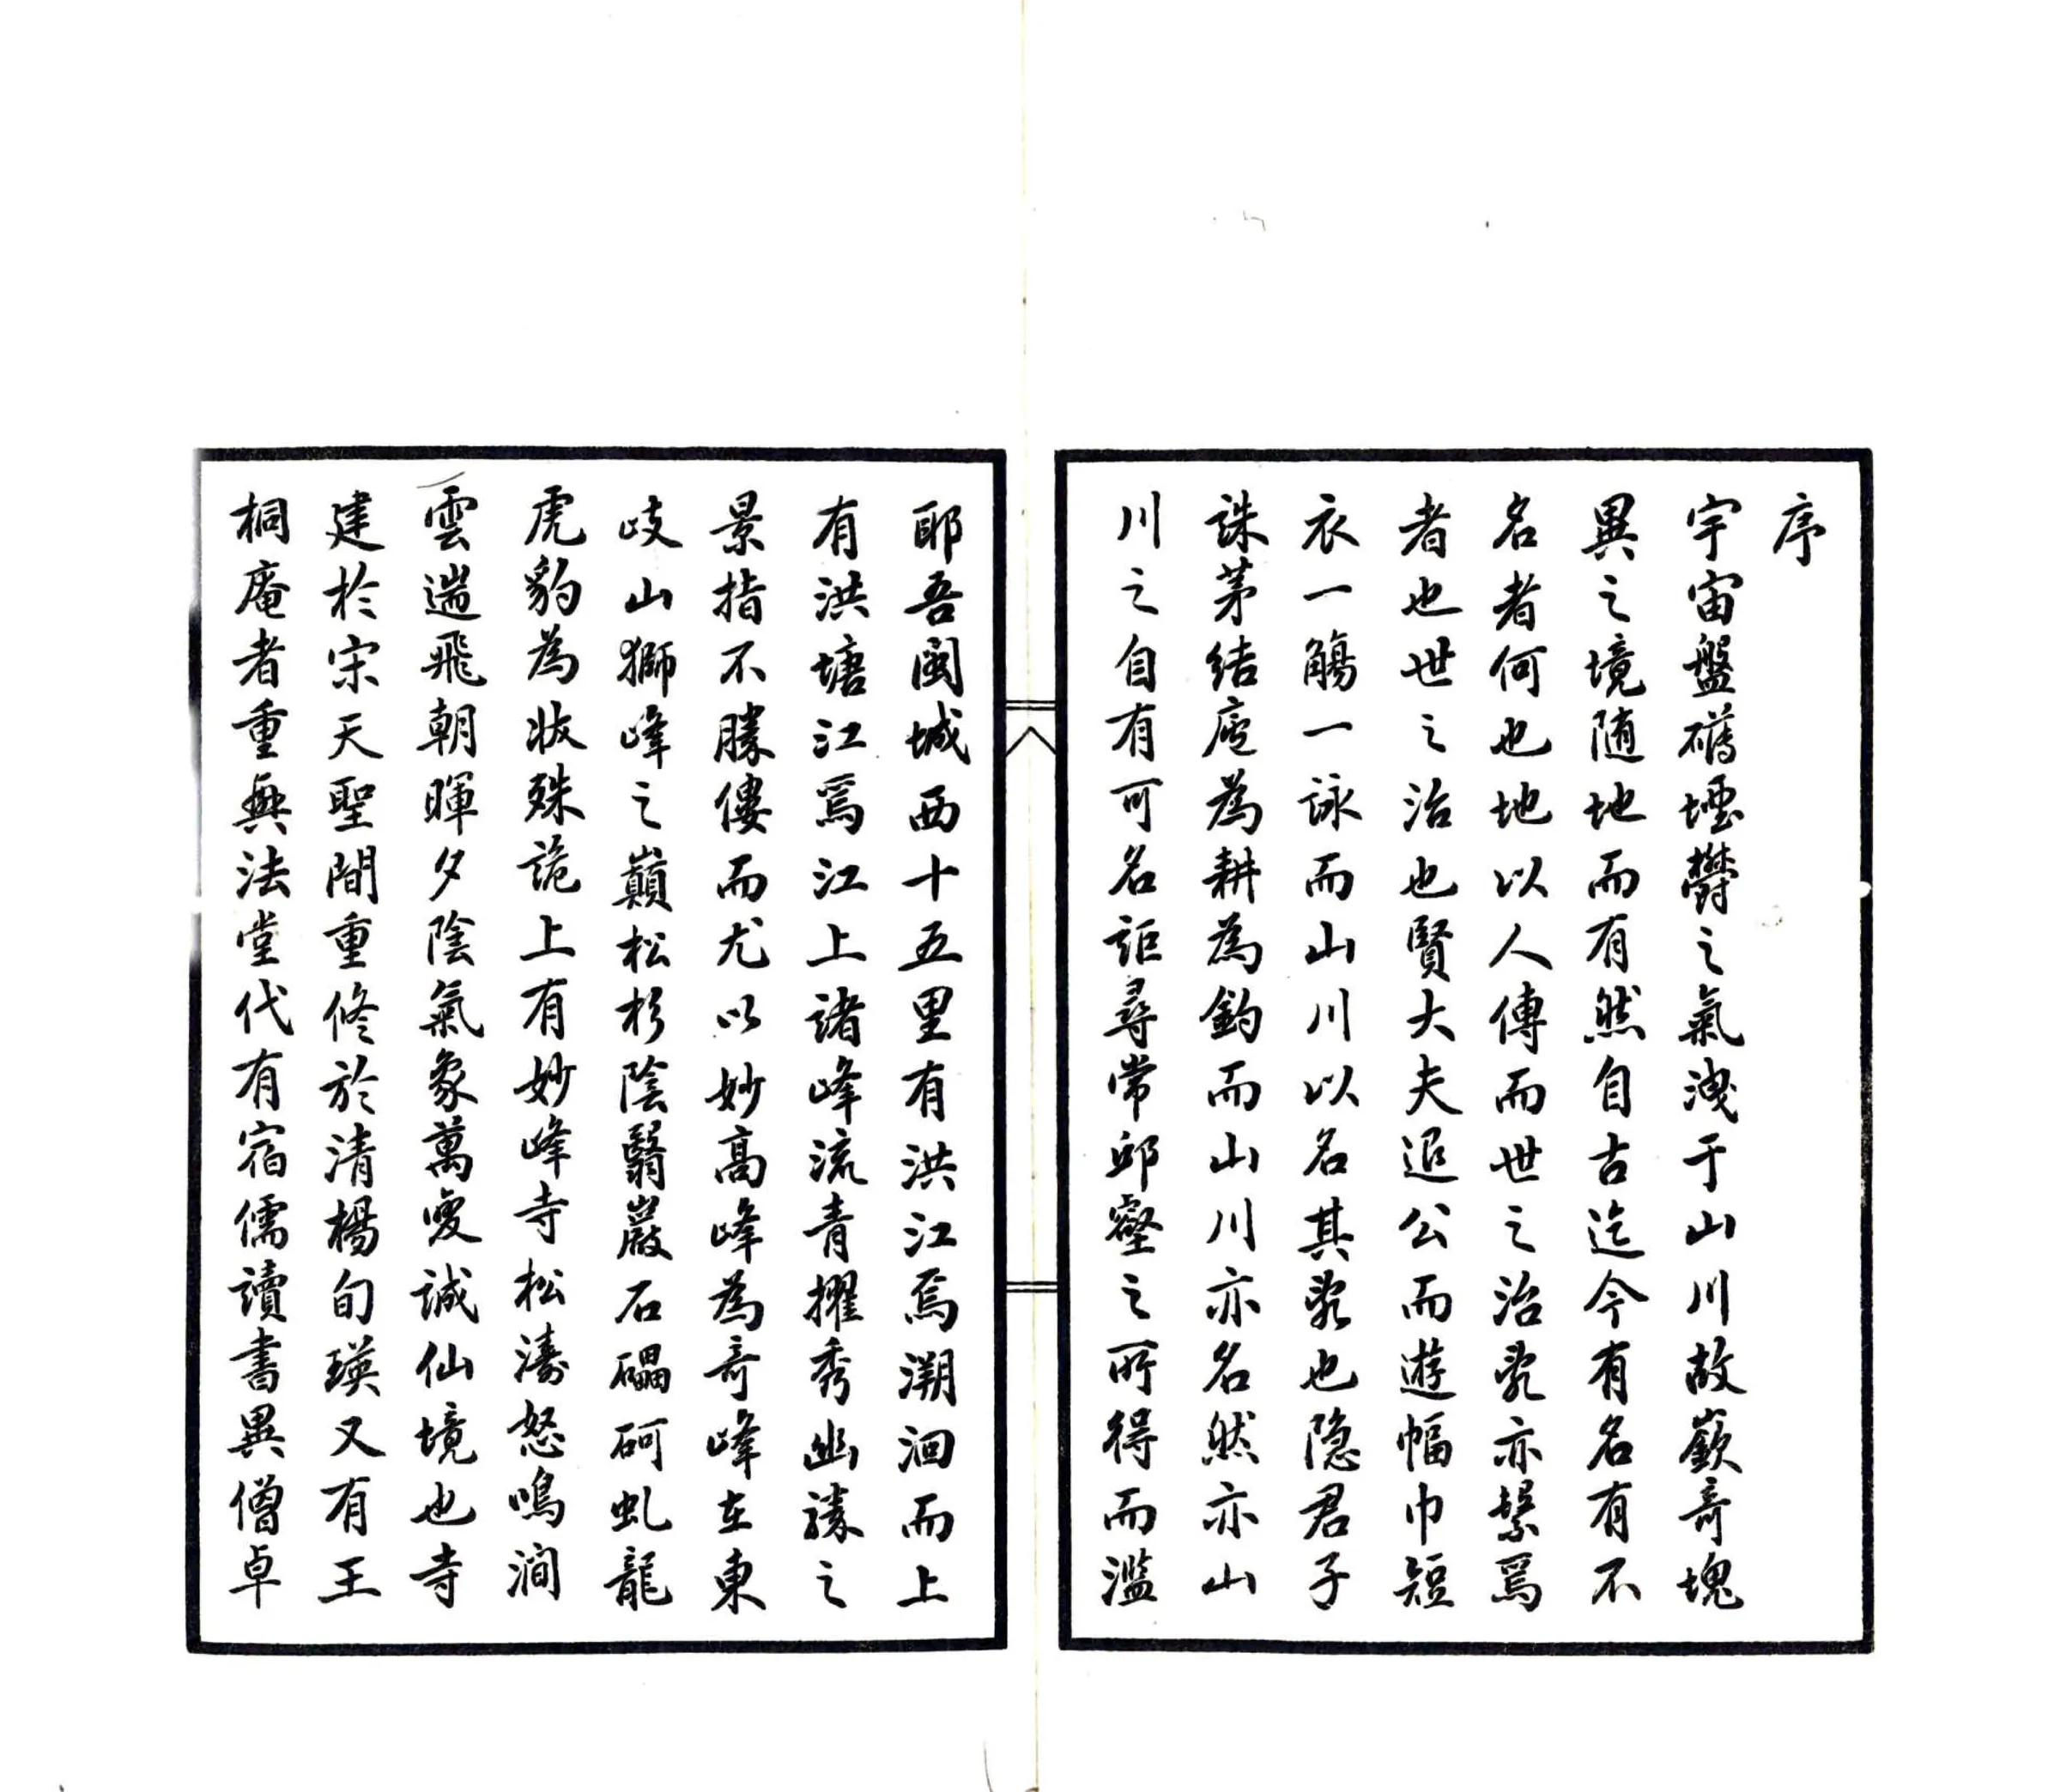 序
宇宙盤礴堙鬱之氣洩于山川故嶔奇塊
異之境随地而有然自古迄今有名有不
名者何也地以人傳而世之治亂亦繫焉
者也世之治也賢大夫退公而遊幅巾短
衣一觴一詠而山川以名其亂也隐君子
誅茅結廬為耕為釣而山川亦名然亦山
川之自有可名詎尋常邱壑之所得而濫
耶吾閩城西十五里有洪江焉溯洄而上
有洪塘江焉江上諸峰流青擢秀幽勝之
景指不勝僂而尤以妙高峰為奇峰在東
歧山獅峰之巔松杉陰翳巖石礧砢虬龍
虎豹為狀殊詭上有妙峰寺松濤怒鳴澗
雲遄飛朝暉夕陰氣象萬變誠仙境也寺
建於宋天聖間重修於清楊旬瑛又有王
桐庵者重興法堂代有宿儒讀書異僧卓